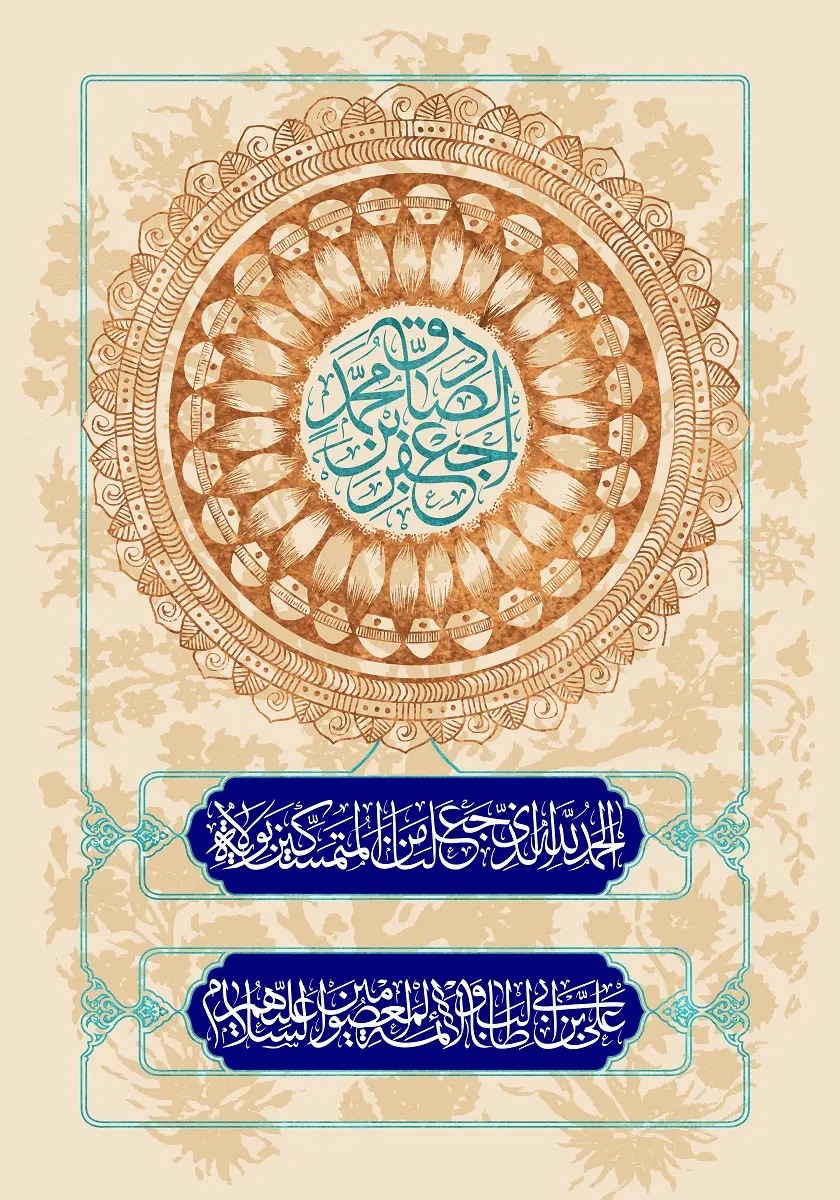 جعفر بن محمّد الصّادق
الحمد لله الذی جعلنا من المتمسّکین بولایة
علیّ بن ابی طالب و الائمة المعصومین علیهم السلام